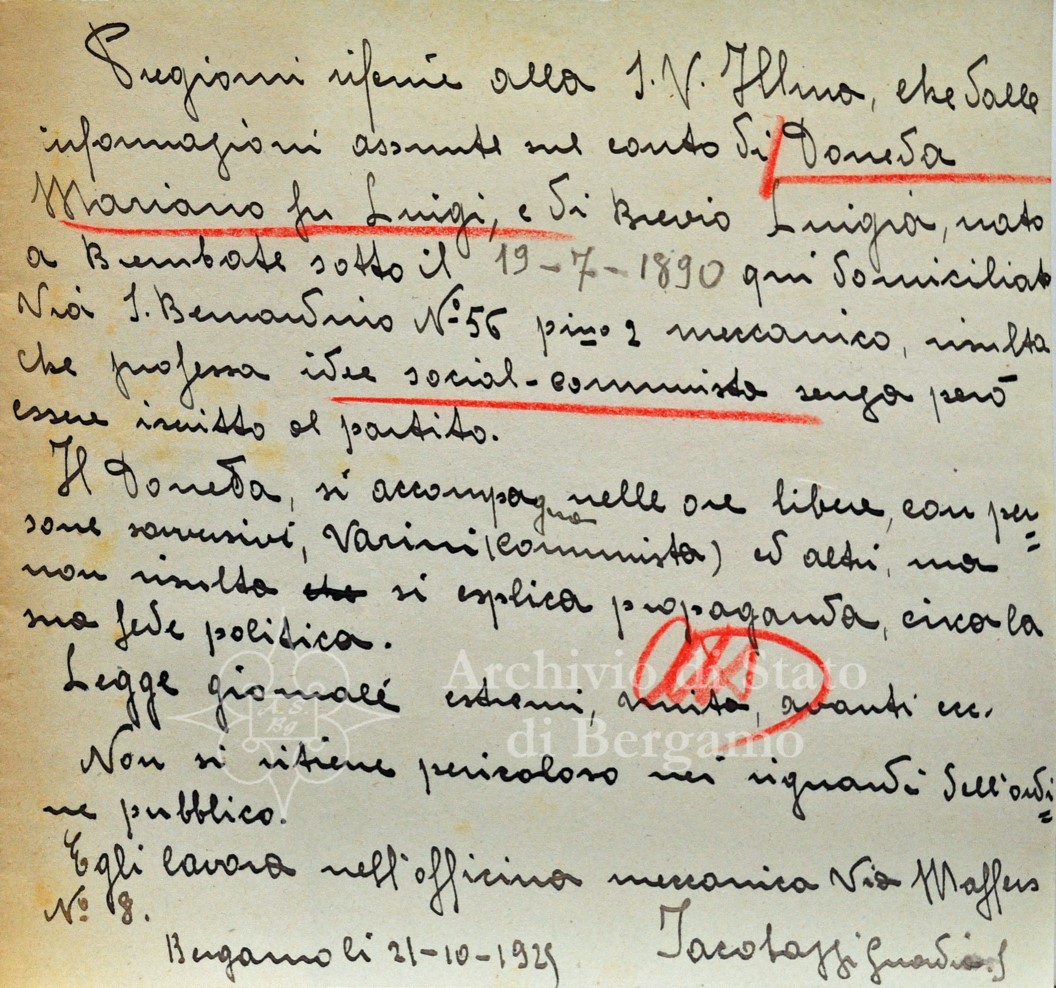 Pregiomi riferire alla S.V. Illma, che dalle
informazioni assunte sul conto di Doneda
Mariano fu Luigi, e di Brevio Luigia, nato
a Brembate sotto il 19-7-1890 qui domiciliato
Via S. Bernardino N° 56 piano 2 meccanico, risulta
che professa idee social-communista senza però
essere iscritto al partito.
Il Doneda, si accompagna nelle ore libere, con per=
sone sovversivi, Varini (communista) ed altri, ma
non risulta che si esplica propaganda, circa la
sua fede politica.
Legge giornali estremi, unità, avanti ecc.
Non si ritiene pericoloso nei riguardi dell'ordi=
ne pubblico.
Egli lavora nell'officina meccanica Via Maffeis
N° 8.
Bergamo li 21-10-1925
Archivio di Stato
di Bergamo
A.S.
Bg